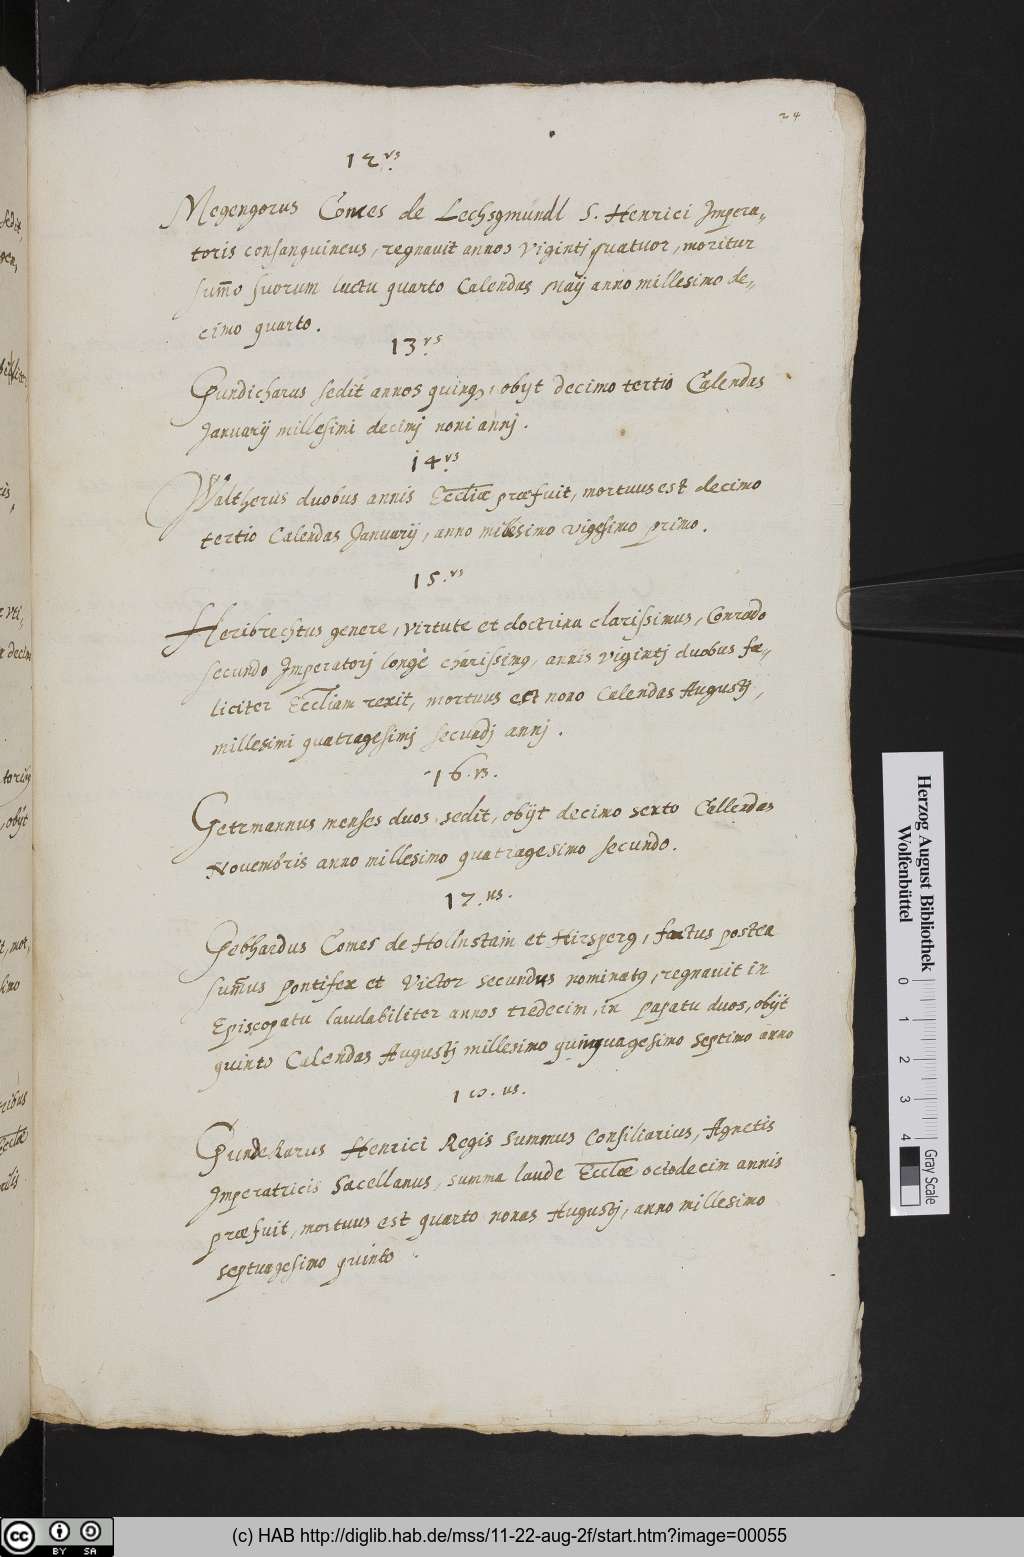 24
12.us
Megengorus Comes de Lechsgmündl S. Henrici Impera„
toris consanguineus, regnavit annos vigintj quatuor, moritur
sum̄o suorum luctu quarto Calendas Maÿ anno millesimo de„
cimo quarto.
13.us
Gundicharus sedit annos quinq₃, obÿt decimo tertio Calendas
Januarÿ millesimi decimj noni annj.
14.us
Waltherus duobus annis Eccliæ præfuit, mortuus est decimo
tertio Calendas Januarÿ, anno millesimo vigesimo primo.
15.us
Heribrechtus genere, virtute et doctrina clarissimus, Conrado
secundo Imperatorj longè charissimꝰ, annis vigintj duobus fæ„
liciter Eccliam rexit, mortuus est nono Calendas Augustj,
millesimi quatragesimj secundj annj.
16.us.
Getzmannus menses duos sedit, obÿt decimo sexto Callendas
Novembris anno millesimo quatragesimo secundo.
17.us.
Gebhardus Comes de Hollnstain et Hirsperg, factus postea
sum̄us pontifex et Victor secundus nominatꝰ, regnauit in
Episcopatu laudabiliter annos tredecim, in papatu duos, obÿt
quinto Calendas Augustj millesimo quinquagesimo septimo anno
18.us.
Gundekarus Henrici Regis summus Consiliarius, Agnetis
Imperatricis Sacellanus, summa laude Eccliæ octodecim annis
præfuit, mortuus est quarto nonas Augustj, anno millesimo
septuagesimo quinto.
Herzog August Bibliothek
Wolfenbüttel
0 1 2 3 4
Gray Scale
(c) HAB http://diglib.hab.de/mss/11-22-aug-2f/start.htm?image=00055
cc BY SA